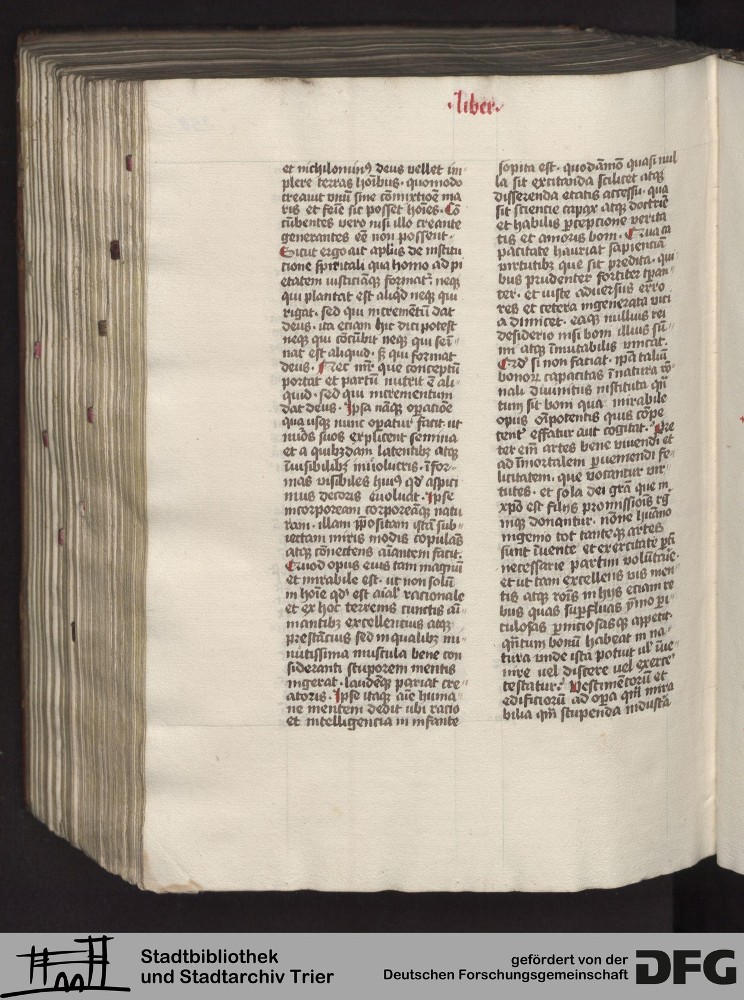 ·liber·
et nichilomin⁹ deus vellet im
plere terras hoı̄bus· quomodo
creauit vnū sine cōmixtiōe ma
ris et feı̄e sic posset hoı̄es· Cō
cūbentes vero nisi illo creante
generantes eē non possent·
Sicut ergo ait apl̄us de institu
tione spiritali qua homo ad pi
etatem iusticiāqꝫ formatᷣ· neqꝫ
qui plantat est aliqd neqꝫ qui
rigat· sed qui incrementū dat
deus· ita etiam hic dici potest
neqꝫ qui cōcūbit neqꝫ qui semī
nat est aliquid· sꝫ qui format
deus· Nec mr̄ que conceptū
portat et partū nutrit ē ali
quid· sed qui incrementum
dat deus· Ipsa nāqꝫ opatiōe
qua usqꝫ nunc opatur facit ut
nūos suos explicent semina
et a quibꝫdam latentibꝫ atqꝫ
īuisibilibꝫ īuolucris· ī for
mas visibiles hui⁹ qd̓ aspici
mus decoris euoluāt· Ipse
incorpoream corporeāqꝫ natu
ram· illam p̄positam istā sub
iectam miris modis copulās
atqꝫ cōnectens aīantem facit·
Quod opus eius tam magnū
et mirabile est· ut non solū
in hoı̄e qd̓ est aīal̓ rationale
et ex hoc terrenis cunctis aī
mantibꝫ excellentius atqꝫ
prestācius sed in qualibꝫ mi
nutissima muscula bene con
sideranti stuporem mentis
ingerat· laudēqꝫ pariat cre
atoris· Ipse itaqꝫ aīe huma
ne mentem dedit ubi racio
et intelligencia in infante
sopita est· quodāmō quasi nul
la sit excitanda scilicet atqꝫ
disserenda etatis accessu· qua
sit sciencie capax atqꝫ doctrīe
et habilis ꝑceptione verita
tis et amoris boni· Qua ca
pacitate hauriat sapienciā
virtutibꝫ que sit predita· qui
bus prudenter fortiter tꝑan
ter· et iuste aduersus erro
res et cetera ingenerata vici
a dimicet· eaqꝫ nullius rei
desiderio nisi boni illius sū
mi atqꝫ īmutabilis vincat·
Qd̓ si non faciat· ipā taliū
bonoꝝ capacitas ī natura rō
nali diuinitus instituta qn̄
tum sit boni qua mirabile
opus oīpotentis quis cōpe
tentᷣ effatur aut cogitat· Pre
ter em̄ artes bene viuendi et
ad īmortalem ꝑueniendi fe
licitatem· que vocantur vir
tutes· et sola dei grā̄ que in
xp̄o est filijs promissiōis rḡ
niqꝫ donantur· nōne huāno
ingenio tot tanteqꝫ artes
sunt īuente et exercitate ptī
necessarie partim volūtarie·
et ut tam excellens vis men
tis atqꝫ rōnis in hijs eciam re
bus quas suꝑfluas ymo pi
culosas ꝑniciosasqꝫ appetit·
qn̄tum bonū habeat in na
tura vnde ista potuit ul̓ īue
nire vel discere uel exerce
testatur· Vestimentorū et
edificiorū ad opa qm̄ mira
bilia qm̄ stupenda industia
Stadtbibliothek
und Stadtarchiv Trier
gefördert von der
Deutschen Forschungsgemeinschaft
DFG